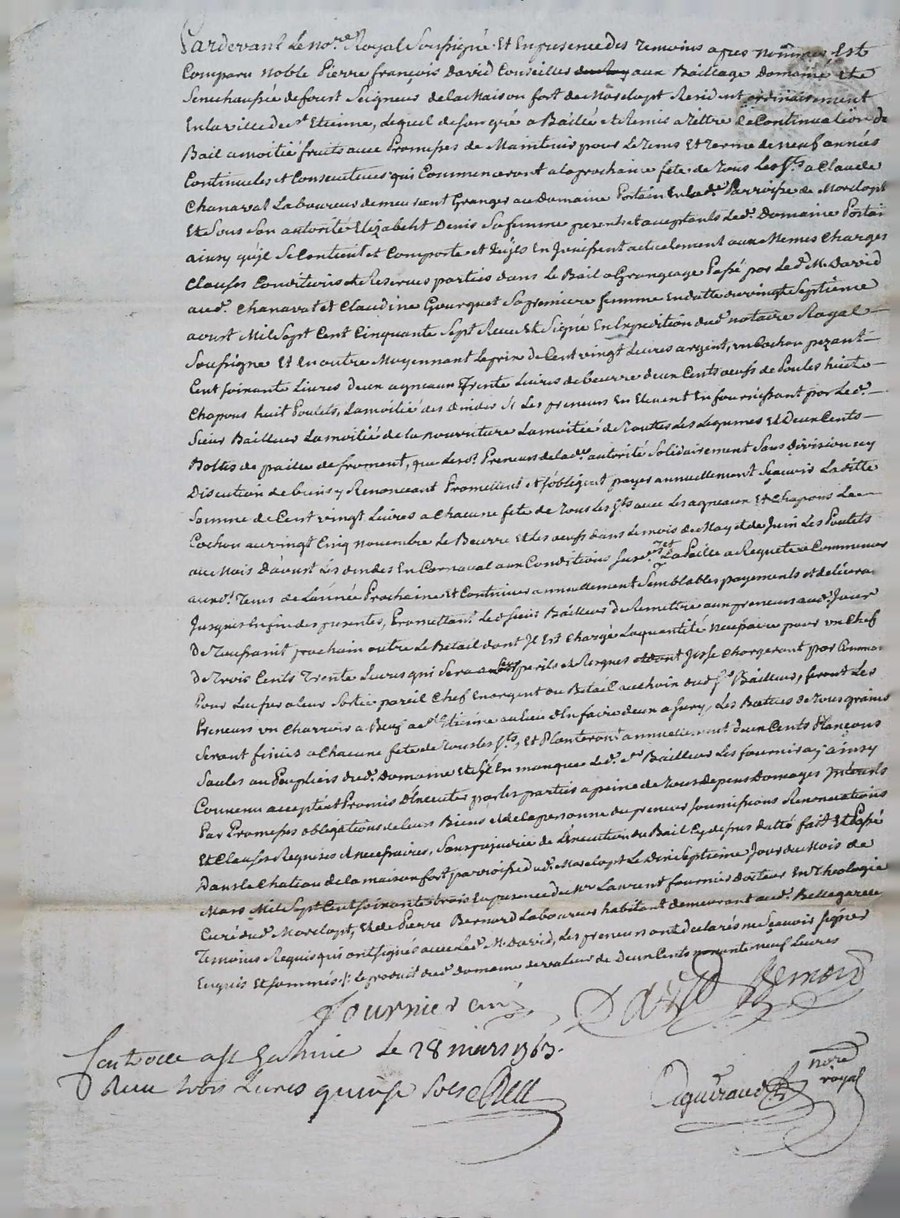 Pardevant Le no.re Royal Soussigné. Et En presence des temoins apres nommés Est
Comparu noble Pierre françois David Conseiller aux Bailliage Domaine et
Senechaussée de forest Seigneur de la Maison fort de Resident ordinairement
En la ville de St Etienne, Lequel de son gré a Baillé et Remis a tittre de Continuation de
Bail a moitié fruits aux Promesses de Maintenir pour Le tems Et terme de neuf années
Continuelles et Consecutives qui Commenceront a la prochaine fete de tous Les Sts a Claude
Chanavat Laboureur demeurant Granger au Domaine Portain En lad.e Parroisse de
Et Sous Son autorité Elizabeht Denis Sa femme presents et acceptants Led. Domaine Portain
ainsy qu'il Se Contient et Comporte et qu'ils En Jouissent actuellement aux Memes Charges
Clauses Conditions et Reserves portées dans le Bail a Grangeage Passé par Led. Mr David
aud. Chanavat et Claudine Gourguet Sa premiere femme En datte du vingt Septieme
aoust Mil Sept Cent Cinquante Sept Receu Et Signé En Expedition dud. notaire Royal
Soussigné Et En outre Moyennant Le prix de Cent vingt Livres argent, un Cochon pezant
Cent soixante Livres deux agneaux Trente Livres de beurre deux Cents oeufs de Poules huit
Chapons huit Poulets, La moitié des dindes Si Les preneurs En Elevent En fournissant par Led.
Sieur Bailleur La moitié de la nourriture La moitié de toutes Les Legumes Et Deux Cents
Bottes de paille de froment, que Lesd. Preneurs de lad.e autorité Solidairement Sans division ny
Discution de biens y Renonceant Promettent et s'obligent payer annuellement Sçavoir Laditte
Somme de Cent vingt Livres a Chacune fete de tous Les Sts avec Les agneaux Et Chapons Le
Cochon au vingt Cinq novembre Le Beurre Et Les oeufs dans Le mois de May et de Juin Les Poulets
au Mois D'aoust Les dindes En Carnaval aux Conditions La Paille a Requete a Commencer
auxd. tems de L'année Prochaine et Continuer annuellement Semblables payements et delivrances
Jusques La fin des presentes, Promettant Led. Sieur Bailleur De Remettre aux preneurs aud. Jour
De Toussaint prochain outre Le Betail dont Il Est Chargé La quantité necessaire pour un Chef
De Trois Cents Trente Livres qui Sera aux perils et Risques Se Chargeront par Commande
Pour Laisser a leur Sortie pareil Chef En argent ou Betail au choix dud. Sr Bailleur, feront Les
Preneurs un Charroir a St Etienne au lieu d'En faire deux a Les Battues de tous grains
Seront finies a Chacune fete de tous Les Sts, Et Planteront annuellement deux Cents Plançons
Saules ou Peupliers dud. Domaine Et S'il En manque Led. Sr Bailleur Les fournira ainsy
Convenu accepté et Promis D'Executer par Les parties a peine de tous Depens Domages Interests
Par Promesses obligations de Leurs Biens et de la personne du preneur Soumissions Renonciations
Et Clauses Requises et necessaires, Sans prejudice de L'Execution du Bail Cy dessus datté fait Et Passé
Dans Le Chateau de la maison fort parroisse dud. Le Dix Septieme Jour du Mois de
Mars Mil Sept Cent soixante trois En presence de Mr Laurent fournier docteur En Theologie
Curé dud. Et de Pierre Bernard Laboureur habitant demeurant aud. Bellegarde
Temoins Requis qui ont Signés avec Led. Mr David, Les preneurs ont declarés ne Sçavoir Signer
Enquis Et Sommés le produit dud. domaine de valeur de Deux Cents nonante neuf Livres
fournier curé David Bernard
Controlé a St Galmier le 28 mars 1763.
Receu trois Livres quinse Sols
nore royal